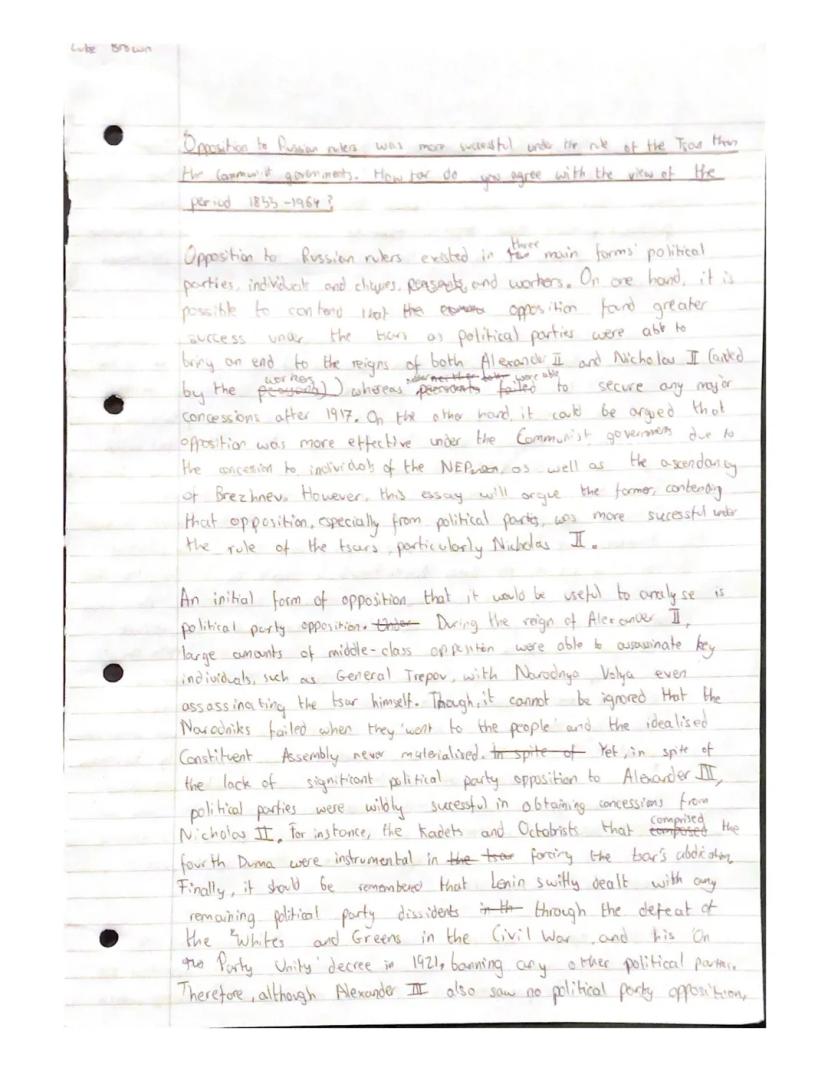 Luke Brown
Opposition to Russian rulers was more successful under the rule of the Tsars than
the Communist governments. How far do you agree with the view of the
period 1855-1964?
Opposition to Russian rulers existed in three main forms: political
parties, individuals and cliques, peasants, and workers. On one hand, it is
possible to contend that the opposition found greater
success under the tsars as political parties were able to
bring an end to the reigns of both Alexander II and Nicholas II (aided
by the workers) whereas were able to secure any major
concessions after 1917. On the other hand, it could be argued that
opposition was more effective under the Communist governments due to
the concesion to individuals of the NEP, as well as the ascendancy
of Brezhnev. However, this essay will argue the former, contending
that opposition, especially from political parties, was more sucessful under
the rule of the tsars, particularly Nicholas II.
An initial form of opposition that it would be useful to analyse is
political party opposition. Under During the reign of Alexander II,
large amounts of middle-class opposition were able to assassinate key
individuals, such as General Trepov, with Narodnya Volya even
assassinating the tsar himself. Though, it cannot be ignored that the
Narodniks failed when they 'went to the people' and the idealised
Constituent Assembly never materialised. In spite of Yet, in spite of
the lack of significant political party opposition to Alexander III,
political parties were wildly sucessful in obtaining concessions from
Nicholas II. For instance, the Kadets and Octobrists that composed comprised the
fourth Duma were instrumental in the tsar forcing the tsar's abdication.
Finally, it should be remembered that Lenin swiftly dealt with any
remaining political party dissidents in th through the defeat of
the Whites and Greens in the Civil War and his 'On
Party Unity' decree in 1921, banning any other political parties.
Therefore, although Alexander III also saw no political party opposition,